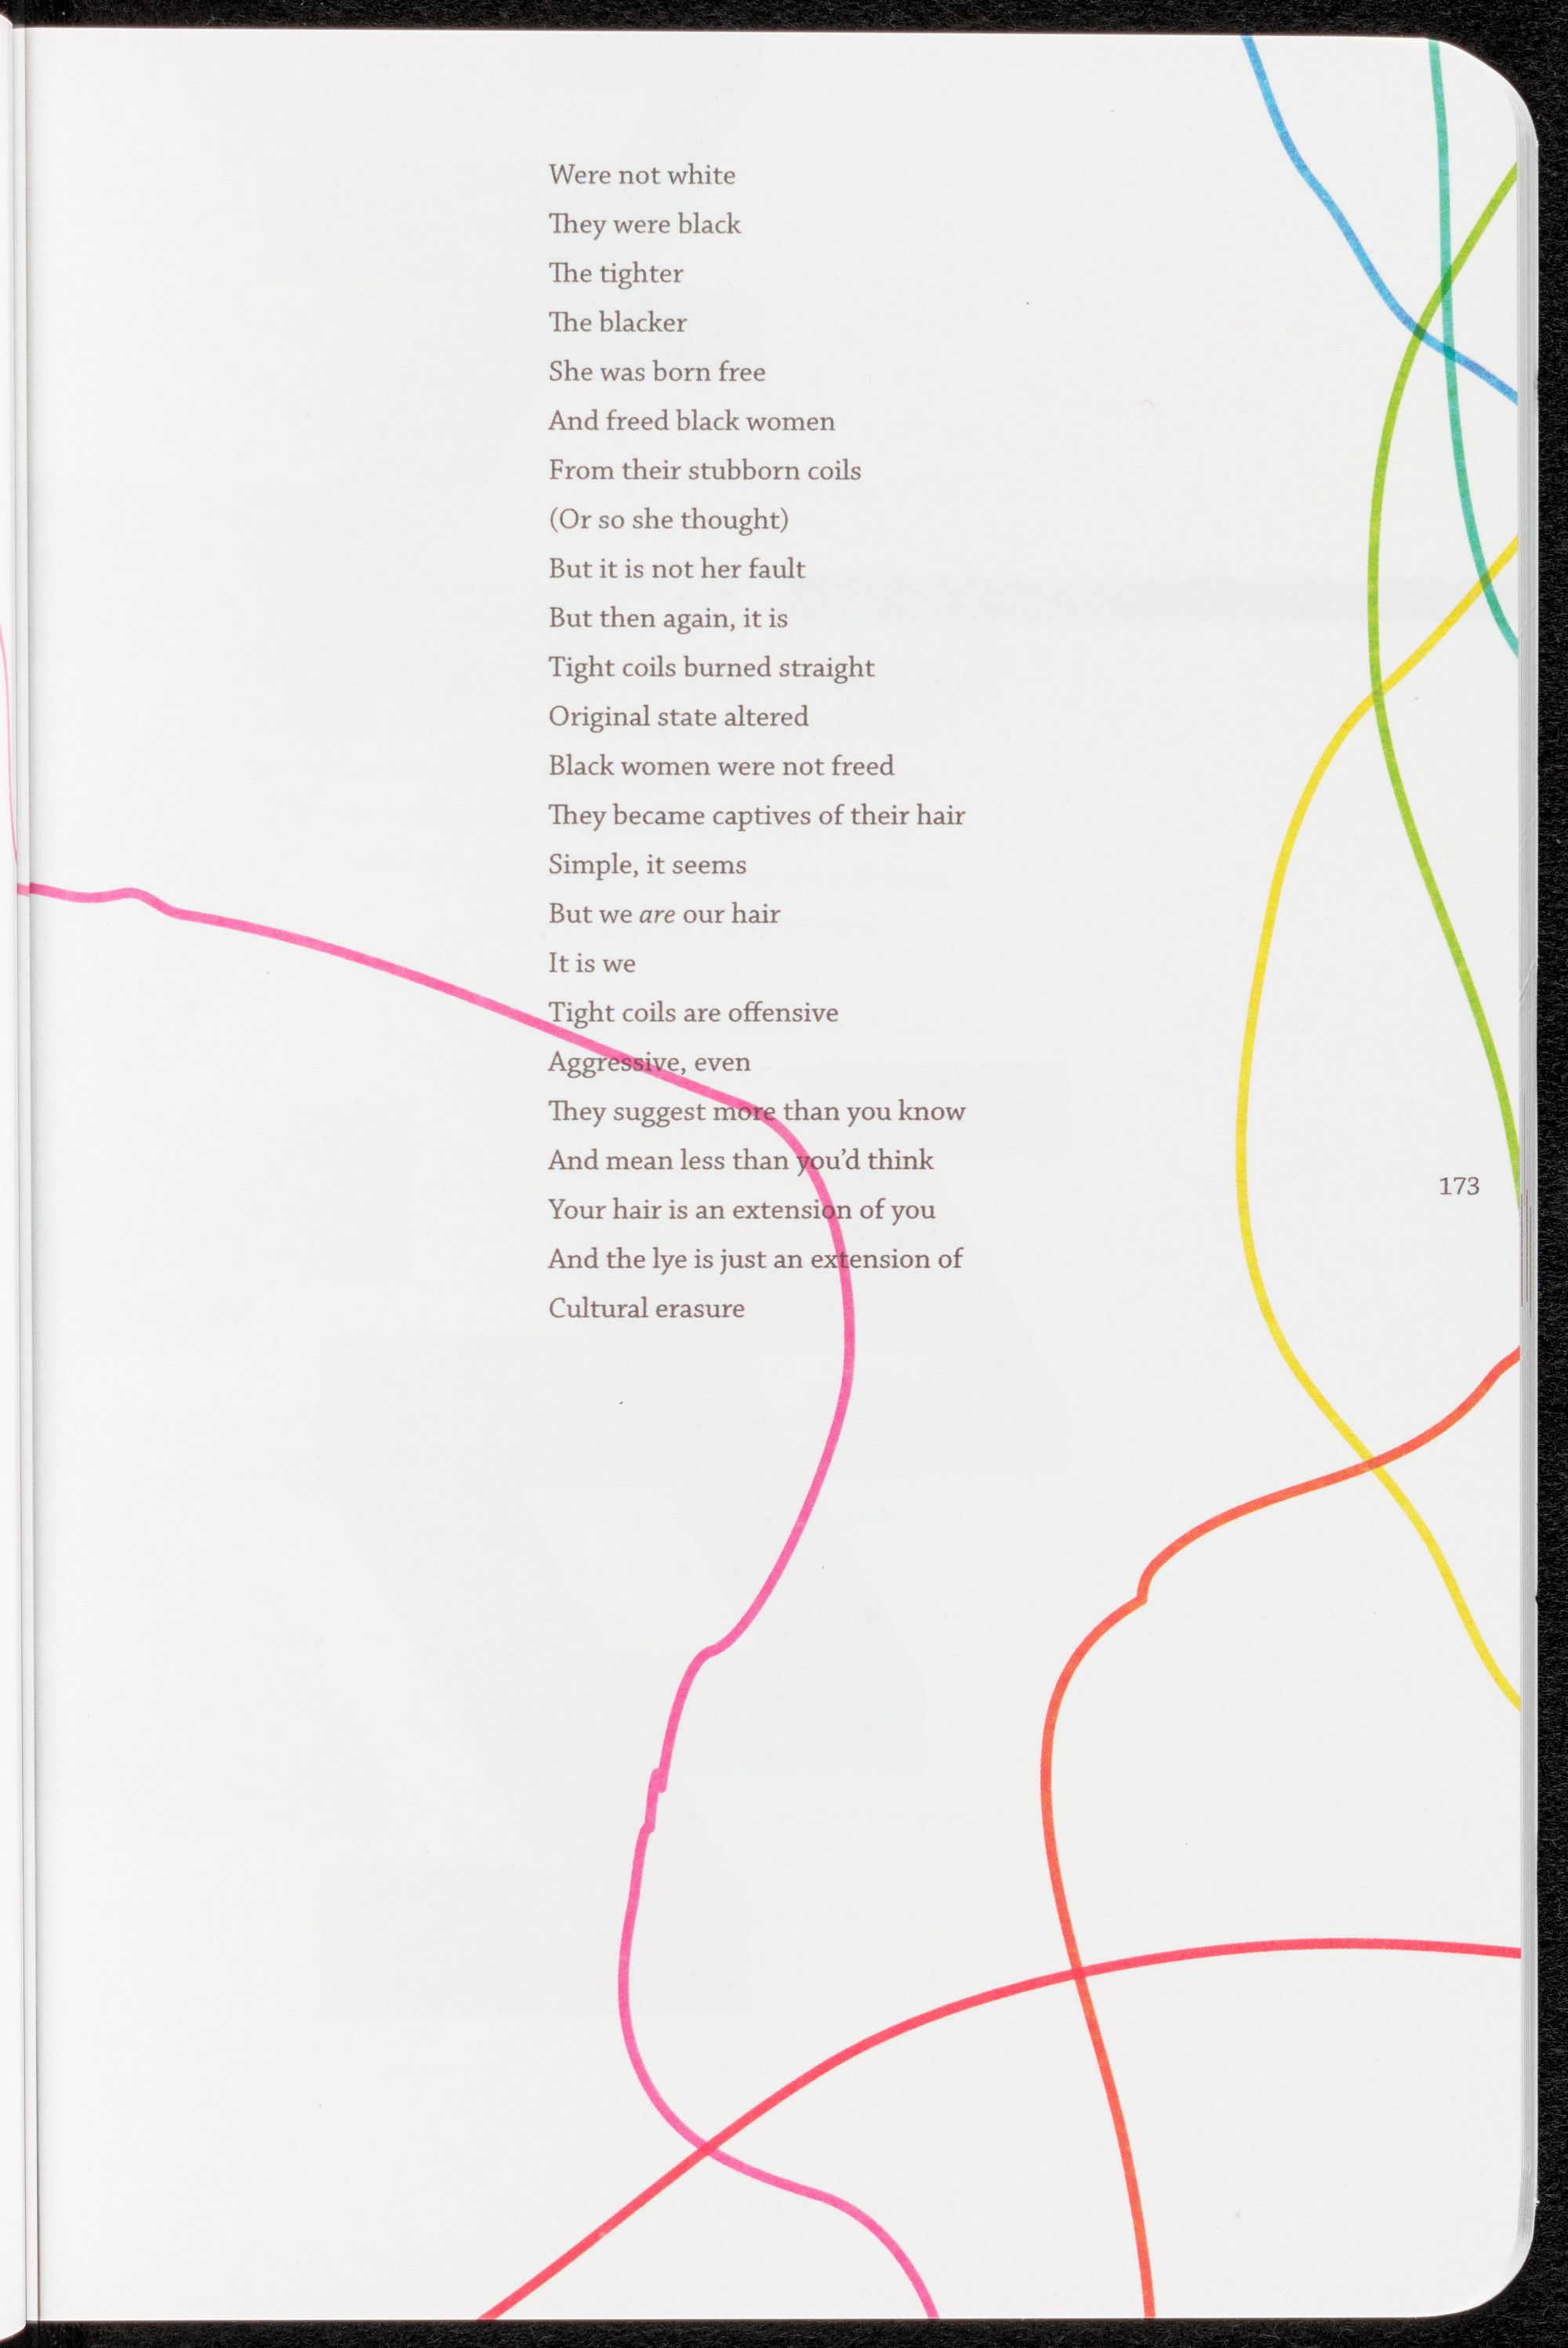 Were not white
They were black
The tighter
The blacker
She was born free
And freed black women
From their stubborn coils
(Or so she thought)
But it is not her fault
But then again, it is
Tight coils burned straight
Original state altered
Black women were not freed
They became captives of their hair
Simple, it seems
But we are our hair
It is we
Tight coils are offensive
Aggressive, even
They suggest more than you know
And mean less than you’d think
Your hair is an extension of you
And the lye is just an extension of
Cultural erasure
173